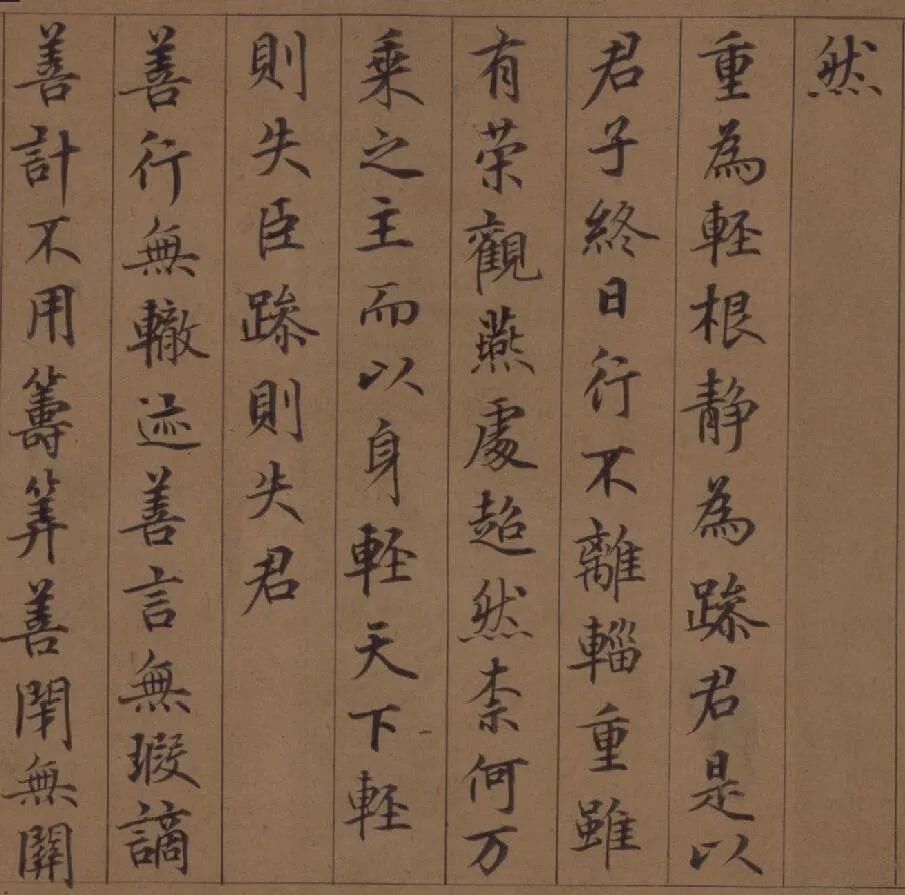 然
重為輕根静為躁君是以
君子終日行不離輜重雖
有荣觀燕處超然柰何万
乗之主而以身輕天下輕
則失臣躁則失君
善行無轍迹善言無瑕謫
善計不用籌筭善閇無關